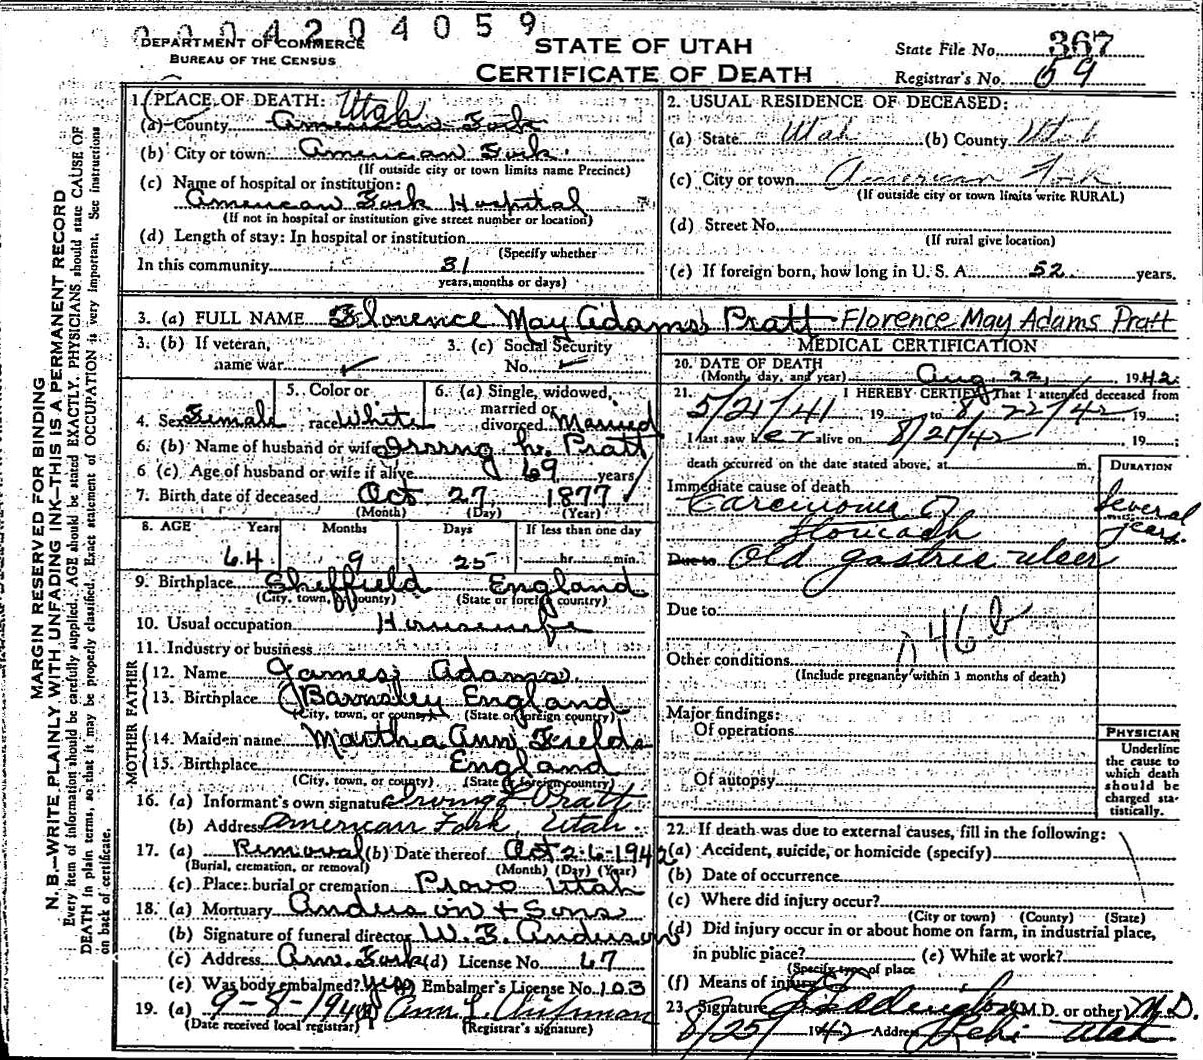 0004204059
DEPARTMENT OF COMMERCE
BUREAU OF THE CENSUS
STATE OF UTAH
CERTIFICATE OF DEATH
State File No. 367
Registrar's No. 59
MARGIN RESERVED FOR BINDING
N. B.—WRITE PLAINLY WITH UNFADING INK—THIS IS A PERMANENT RECORD
Every item of information should be carefully supplied. AGE should be stated EXACTLY. PHYSICIANS should state CAUSE OF
DEATH in plain terms, so that it may be properly classified. Exact statement of OCCUPATION is very important. See instructions
on back of certificate.
1. PLACE OF DEATH: Utah
(a) County American Fork
(b) City or town American Fork
(If outside city or town limits name Precinct)
(c) Name of hospital or institution:
American Fork Hospital
(If not in hospital or institution give street number or location)
(d) Length of stay: In hospital or institution
(Specify whether
In this community 31
years, months or days)
2. USUAL RESIDENCE OF DECEASED:
(a) State Utah (b) County Utah
(c) City or town American Fork
(If outside city or town limits write RURAL)
(d) Street No.
(If rural give location)
(e) If foreign born, how long in U. S. A. 52 years.
3. (a) FULL NAME Florence May Adams Pratt Florence May Adams Pratt
3. (b) If veteran,
name war
3. (c) Social Security
No.
4. Sex Female
5. Color or
race White
6. (a) Single, widowed,
married or
divorced Married
6. (b) Name of husband or wife Irving L. Pratt
6 (c). Age of husband or wife if alive 69 years
7. Birth date of deceased Oct 27 1877
(Month) (Day) (Year)
8. AGE Years Months Days If less than one day
64 9 25 hr. min.
9. Birthplace Sheffield England
(City, town, county) (State or foreign country)
10. Usual occupation Housewife
11. Industry or business
FATHER
12. Name James Adams
13. Birthplace Barnsley England
(City, town, or county) (State or foreign country)
MOTHER
14. Maiden name Martha Ann Fields
15. Birthplace England
(City, town, or county) (State or foreign country)
16. (a) Informant's own signature Irving L Pratt
(b) Address American Fork, Utah
17. (a) Removal (b) Date thereof Oct 26-1942
(Burial, cremation, or removal) (Month) (Day) (Year)
(c) Place: burial or cremation Provo Utah
18. (a) Mortuary Anderson & Sons
(b) Signature of funeral director W. E. Anderson
(c) Address Am. Fork (d) License No. 67
(e) Was body embalmed? Yes (f) Embalmer's License No. 103
19. (a) 9-8-1942 Ann L. Chipman
(Date received local registrar) (Registrar's signature)
MEDICAL CERTIFICATION
20. DATE OF DEATH
(Month, day, and year) Aug 22, 1942
21. I HEREBY CERTIFY, That I attended deceased from
5/21/41 19 to 8/22/42, 19 ;
I last saw her alive on 8/21/42, 19 ;
death occurred on the date stated above, at m.
DURATION
Immediate cause of death
Carcinoma of
Stomach
Several
years.
Due to Old gastric ulcer
Due to
46 b
Other conditions
(Include pregnancy within 3 months of death)
Major findings:
Of operations
Of autopsy
PHYSICIAN
Underline
the cause to
which death
should be
charged sta-
tistically.
22. If death was due to external causes, fill in the following:
(a) Accident, suicide, or homicide (specify)
(b) Date of occurrence
(c) Where did injury occur?
(City or town) (County) (State)
(d) Did injury occur in or about home on farm, in industrial place,
in public place? (e) While at work?
(Specify type of place
(f) Means of injury
23. Signature Eddington (M.D. or other) M.D.
8/25/ 1942 Address Lehi Utah